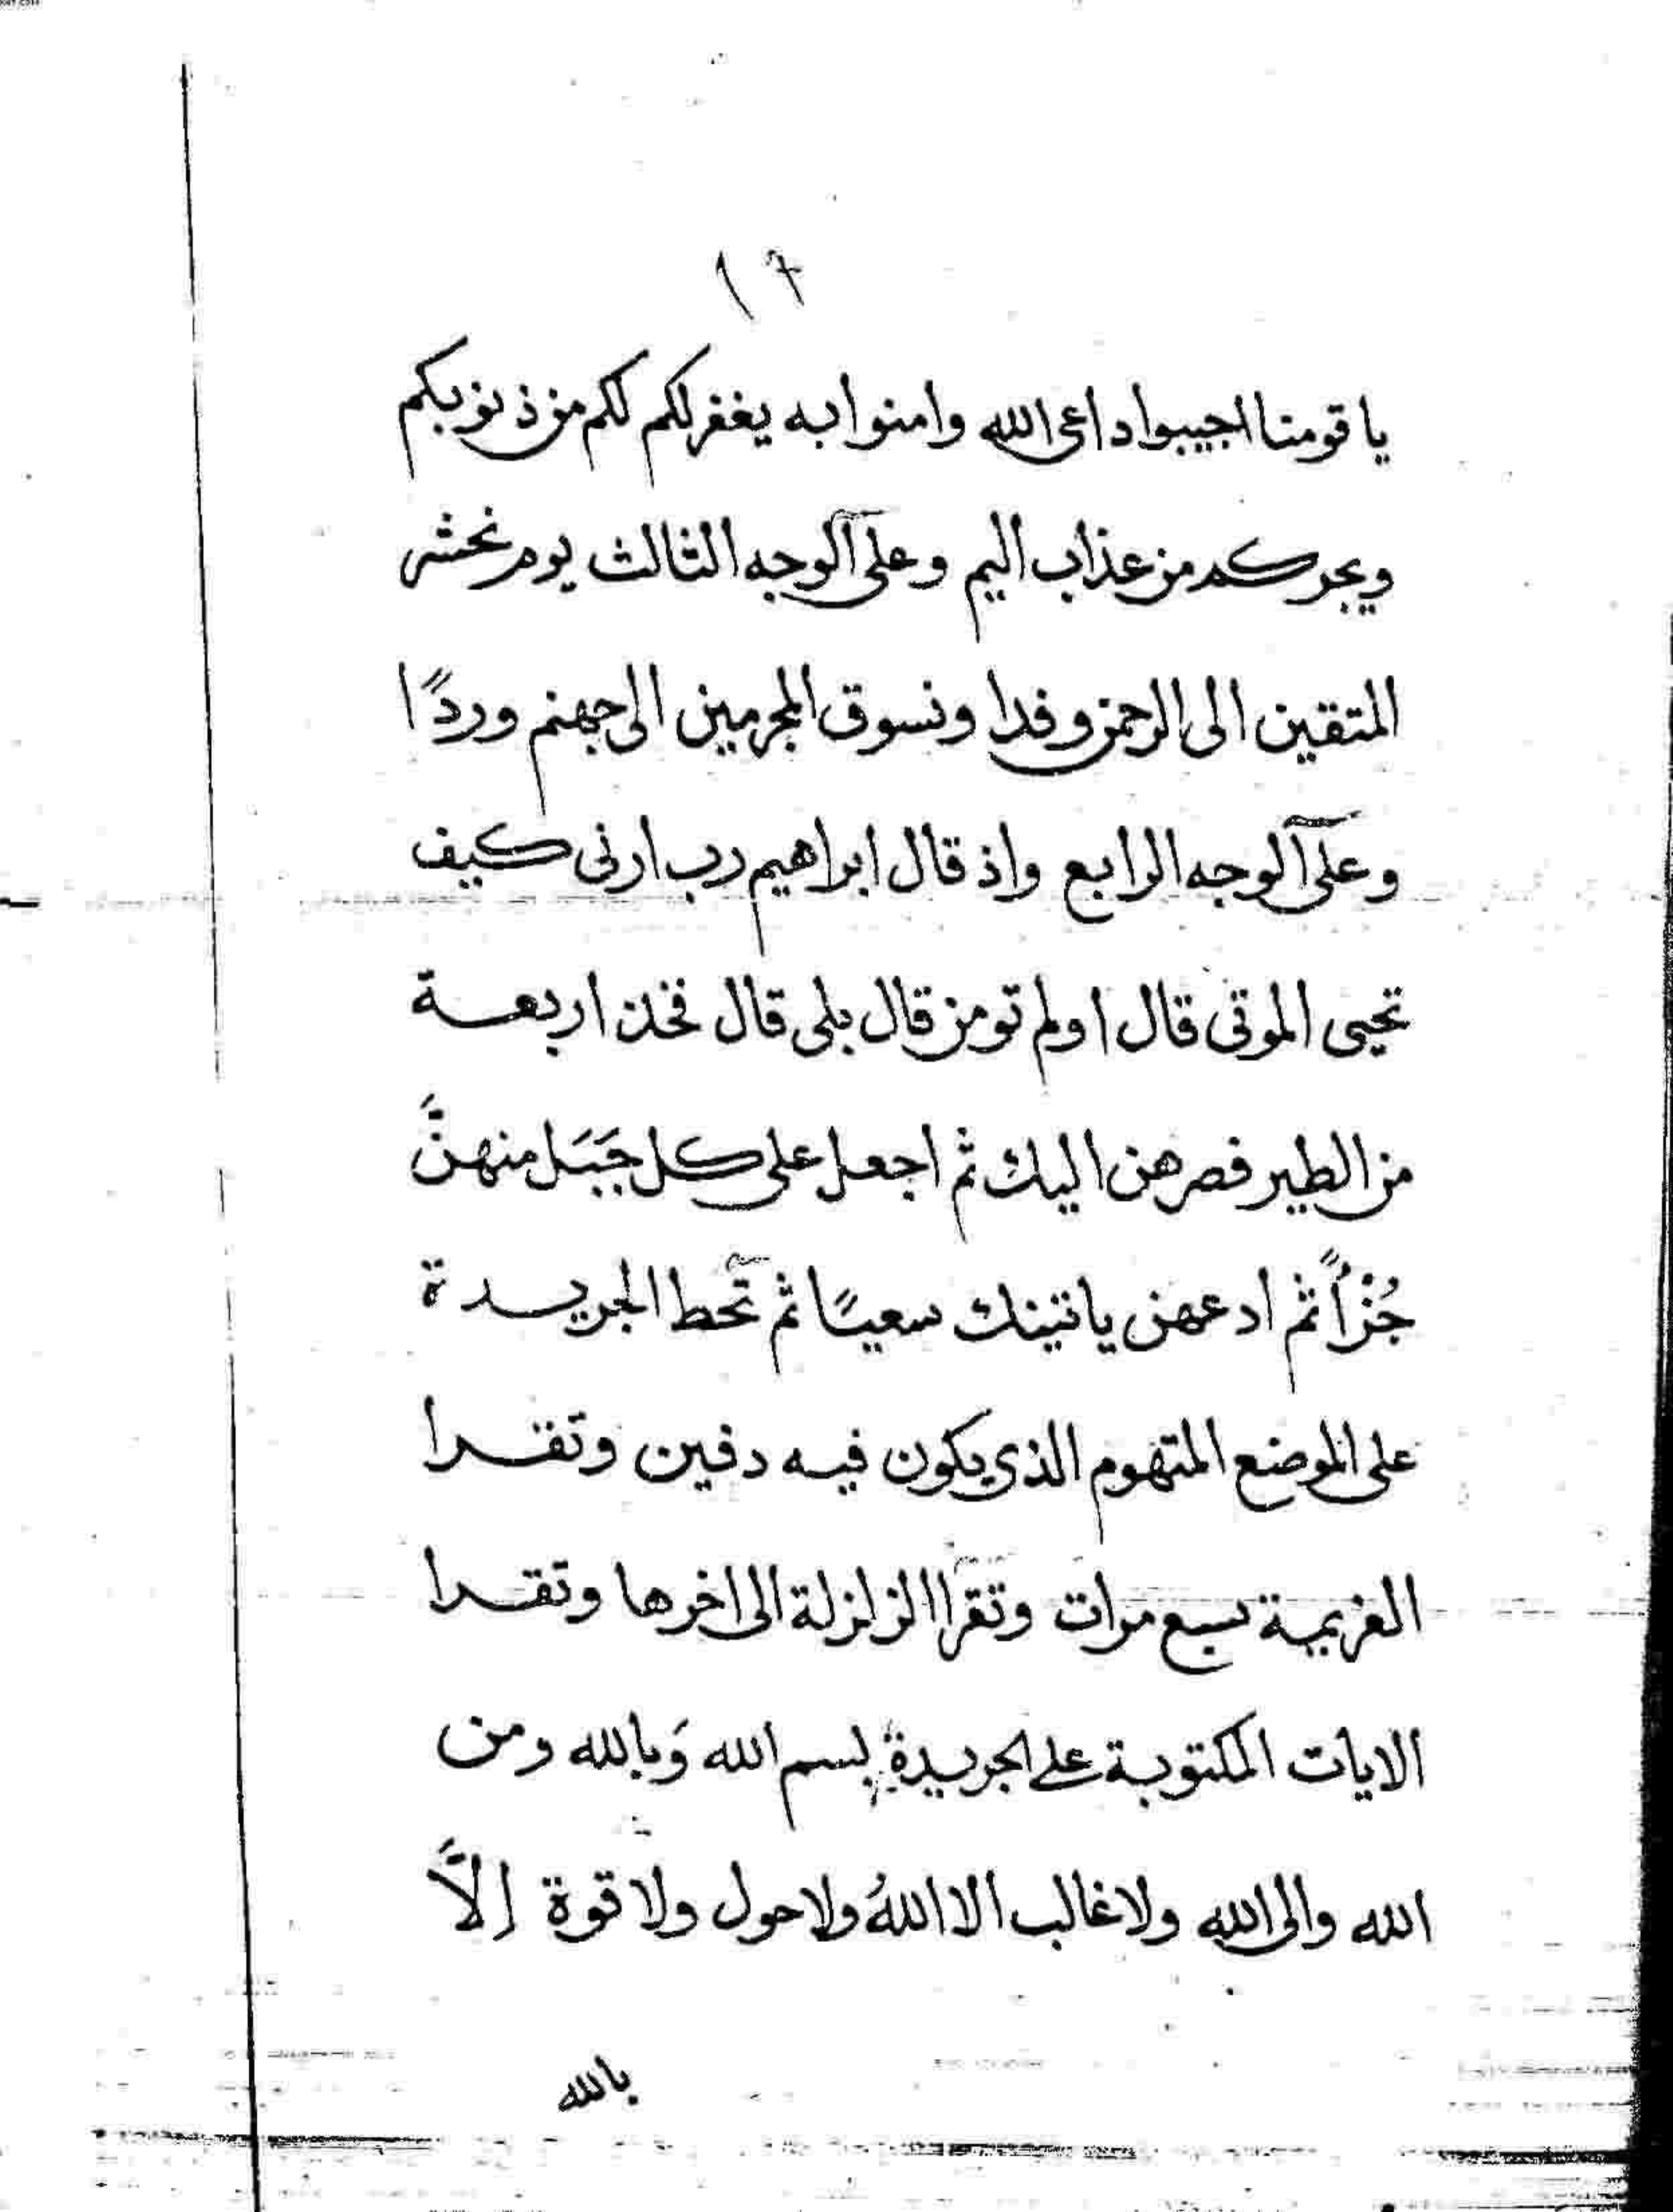 ١٢
يا قومنا اجيبوا داعى الله وامنوا به يغفر لكم لكم من ذنوبكم
ويجركم من عذاب اليم وعلى الوجه الثالث يوم نحشر
المتقين الى الرحمن وفدا ونسوق المجرمين الى جهنم وردًا
وعلى الوجه الرابع واذ قال ابراهيم رب ارنى كيف
تحيى الموتى قال اولم تومن قال بلى قال فخذ اربعة
من الطير فصرهن اليك ثم اجعل على كل جَبَل منهنَّ
جُزْأً ثم ادعهن ياتينك سعيًا ثم تحط الجريدة
على الموضع المتهوم الذى يكون فيه دفين وتقرا
العزيمة سبع مرات وتقرا الزلزلة الى اخرها وتقرا
الايات المكتوبة على الجريدة بسم الله وَبالله ومن
الله والى الله ولا غالب الا اللهُ ولا حول ولا قوة إلاَّ
بالله